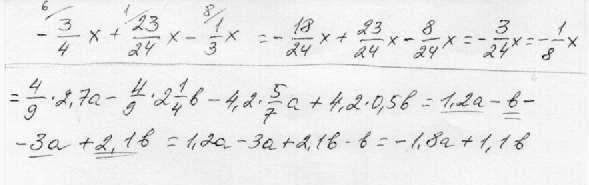 -⁶⁄3/4 x + ¹⁄23/24 x - ⁸⁄1/3 x = -18/24 x + 23/24 x - 8/24 x = -3/24 x = -1/8 x
= 4/9 · 2,7a - 4/9 · 2 1/4 b - 4,2 · 5/7 a + 4,2 · 0,5b = 1,2a - b -
- 3a + 2,1b = 1,2a - 3a + 2,1b - b = -1,8a + 1,1b